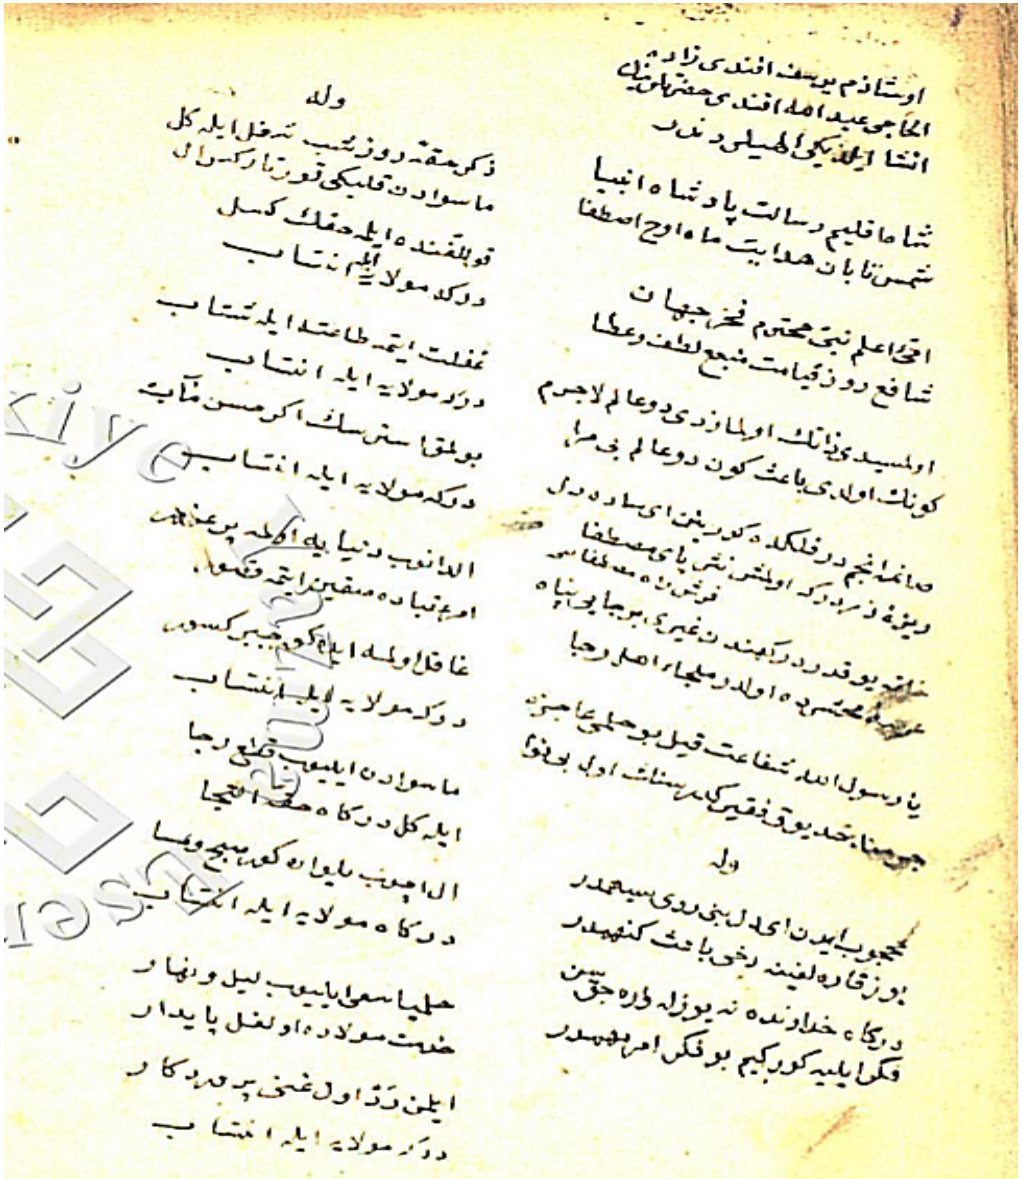 اوستاذم يوسف افندى زاده
الحاجى عبد الله افندى حضرتلرينك
انشا ايلديكى در
شاه اقليم رسالت پادشاه انبيا
شمس تابان هدايت ماه اوج اصطفا
افتخار عالم نبئ محترم فخر جهان
شافع روز قيامت منبع لطف وعطا
اولمسيدى ذاتك اولمازدى دو عالم لاجرم
كونك اولدى باعث كون دو عالم بى مرا
صانمه انجم در فلكده كورينن اى ساده دل
ريزۀ زردركه اولمش نثر پاى مصطفا
يوقدر دركهندن غيرى بر جاى پناه
عرصۀ محشرده اولدر ملجاء اهل رجا
يا رسول الله شفاعت قيل بو حلمى عاجزه
يوق فقير اول بى نوا
وله
محجوب ايدن اى دل بنى روى سيهمدر
يوز قاره لغينه دخى باعث كنهمدر
درگاه خداونده نه يوزله واره جق سين
فكر ايليه كور كيم بو فكر امر مهمدر
وله
ذكر حقه روز شب شغل ايله كل
ماسوادن قلبكى قورتار كسل
قوللغنده ايلمه صقن كسل
دركه مولايه ايله انتساب
غفلت ايتمه طاعته ايله شتاب
دركه مولايه ايله انتساب
بولمق استرسك اكر حسن مآب
دركه مولايه ايله انتساب
الدانوب دنيايه اولمه پر غرور
امر عقباده صقين ايتمه قصور
غافل اولمه كور
دركه مولايه ايله انتساب
ماسوادن ايليوب قطع رجا
ايله كل درگاه حقه التجا
ال اچوب يالواره كور صبح ومسا
درگاه مولايه ايله انتساب
حلميا سعى ايليوب ليل ونهار
خدمت مولاده اولغل پايدار
ايلمز رد اول غنى پروردكار
دركه مولايه ايله انتساب
Yazma